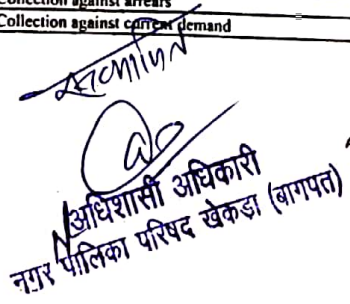 Collection against arrears
Collection against current demand
सत्यापित
अधिशासी अधिकारी
नगर पालिका परिषद खेकड़ा (बागपत)